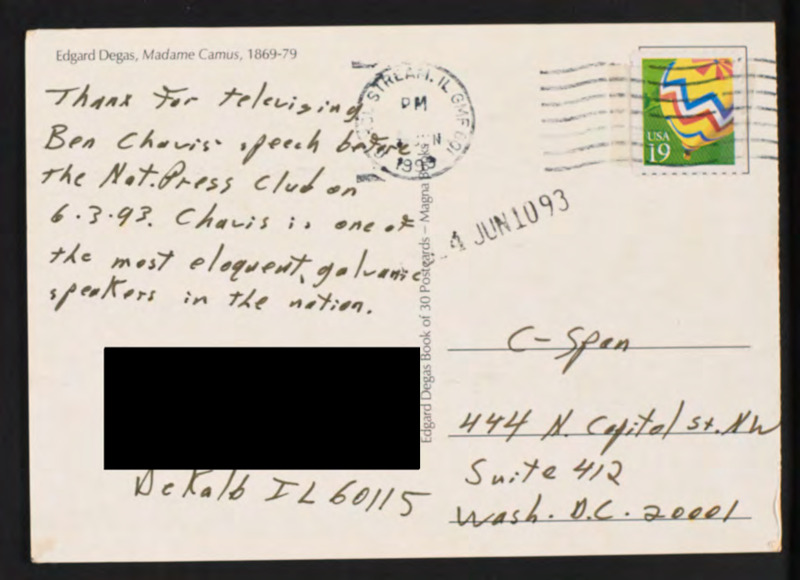 Edgard Degas, Madame Camus, 1869-79
Thanx for televising
Ben Chavis' speech before
the Nat. Press Club on
6.3.93. Chavis is one of
the most eloquent, galvanic
speakers in the nation.
DeKalb IL 60115
Edgard Degas Book of 30 Postcards – Magna Books
STREAM, IL GMF 601
PM
1993
USA
19
4 JUN 10 93
C-Span
444 N. Capitol St. NW
Suite 412
Wash. D.C. 20001